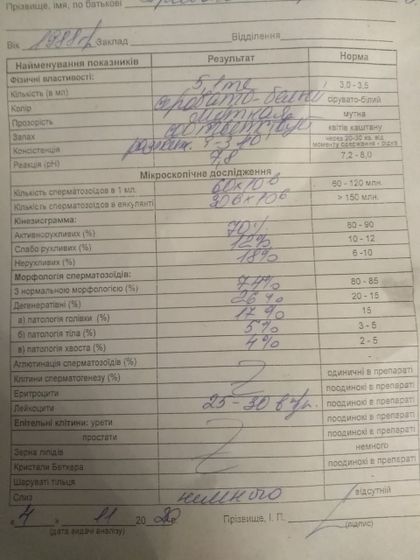 Прізвище, ім'я, по батькові
Вік 1988 р. Заклад Відділення
Найменування показників Результат Норма
Фізичні властивості:
Кількість (в мл) 5,1 3,0 - 3,5
Колір сіровато-белый сірувато-білий
Прозорість мутная мутна
Запах квітів каштану
Консистенція через 20-30 хв. від моменту одержання - рідка
Реакція (pH) 7,8 7,2 - 8,0
Мікроскопічне дослідження
Кількість сперматозоїдів в 1 мл. 60×10⁶ 60 - 120 млн.
Кількість сперматозоїдів в еякуляті 306×10⁶ > 150 млн.
Кінезиограма:
Активнорухливих (%) 70% 80 - 90
Слабо рухливих (%) 12% 10 - 12
Нерухливих (%) 18% 6 -10
Морфологія сперматозоїдів:
З нормальною морфологією (%) 74% 80 - 85
Дегенеративні (%) 26% 20 - 15
а) патологія голівки (%) 17% 15
б) патологія тіла (%) 5% 3 - 5
в) патологія хвоста (%) 4% 2 - 5
Аглютинація сперматозоїдів (%) -
Клітини сперматогенезу (%) одиничні в препараті
Еритроцити поодинокі в препараті
Лейкоцити 25 - 30 в п/з. поодинокі в препараті
Епітеліальні клітини: урети поодинокі в препараті
простати поодинокі в препараті
Зерна ліпідів немного
Кристали Беткера поодинокі в препараті
Шаруваті тільця -
Слиз немного відсутній
« 4 » 11 20 20 р. Прізвище, І. П.
(дата видачі аналізу) (підпис)